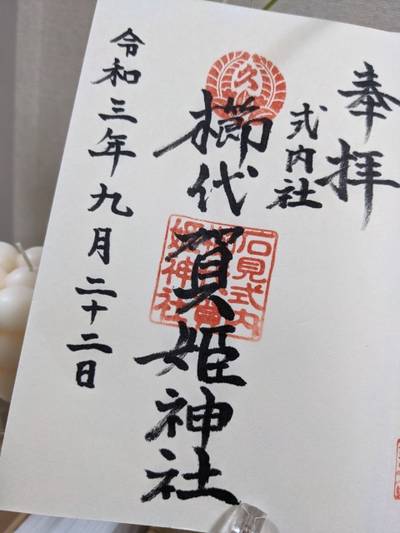 奉拝
式内社
久
櫛代賀姫神社
石見式内
櫛代賀
姫神社
令和三年九月二十二日